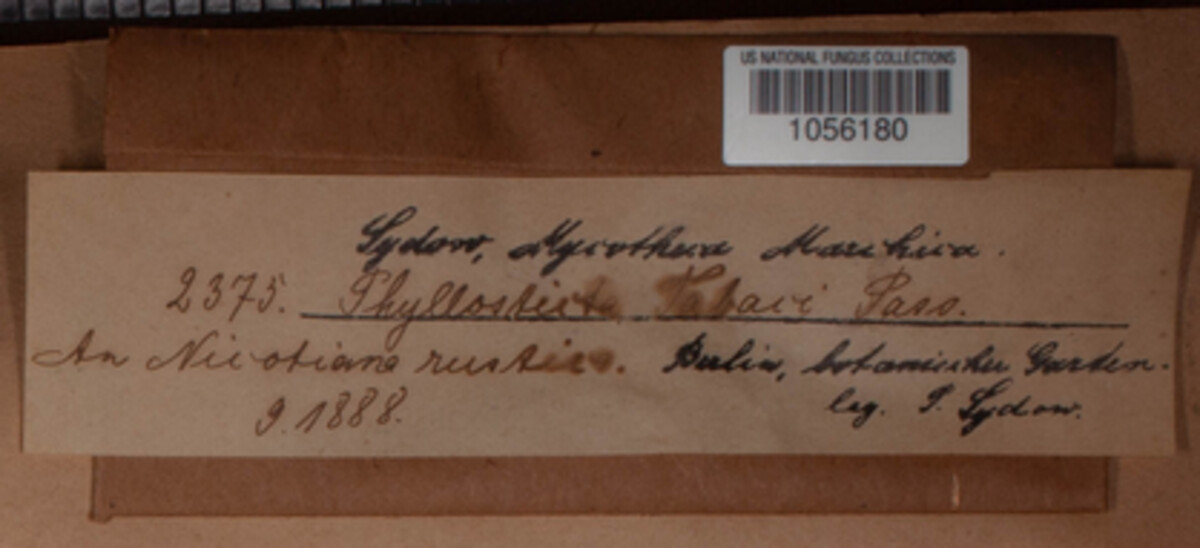 US NATIONAL FUNGUS COLLECTIONS
1056180
Sydow, Mycotheca Marchica.
2375. Phyllosticta Tabaci Pass.
An Nicotiana rustica. Berlin, botanischer Garten.
9. 1888. leg. P. Sydow.